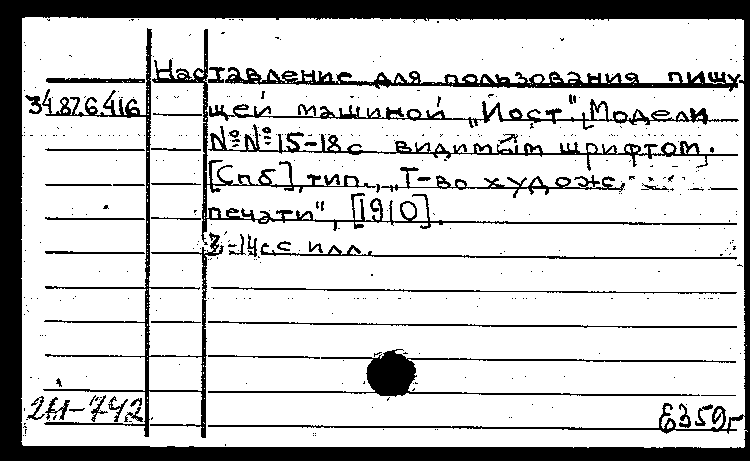 Наставление для пользования пишу-
34.87.6.416 щей машиной „Йост". Модели
№№ 15-18 с видимым шрифтом.
[Спб], тип. „Т-во худож.
печати", [1910].
3-14с.с илл.
Е359г